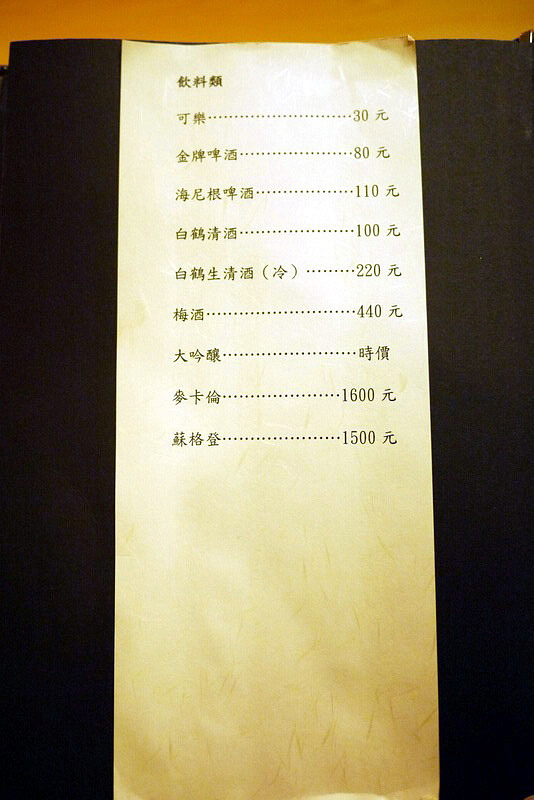 飲料類
可樂························30 元
金牌啤酒···················80 元
海尼根啤酒················110 元
白鶴清酒···················100 元
白鶴生清酒（冷）·········220 元
梅酒·························440 元
大吟釀······················時價
麥卡倫····················1600 元
蘇格登····················1500 元